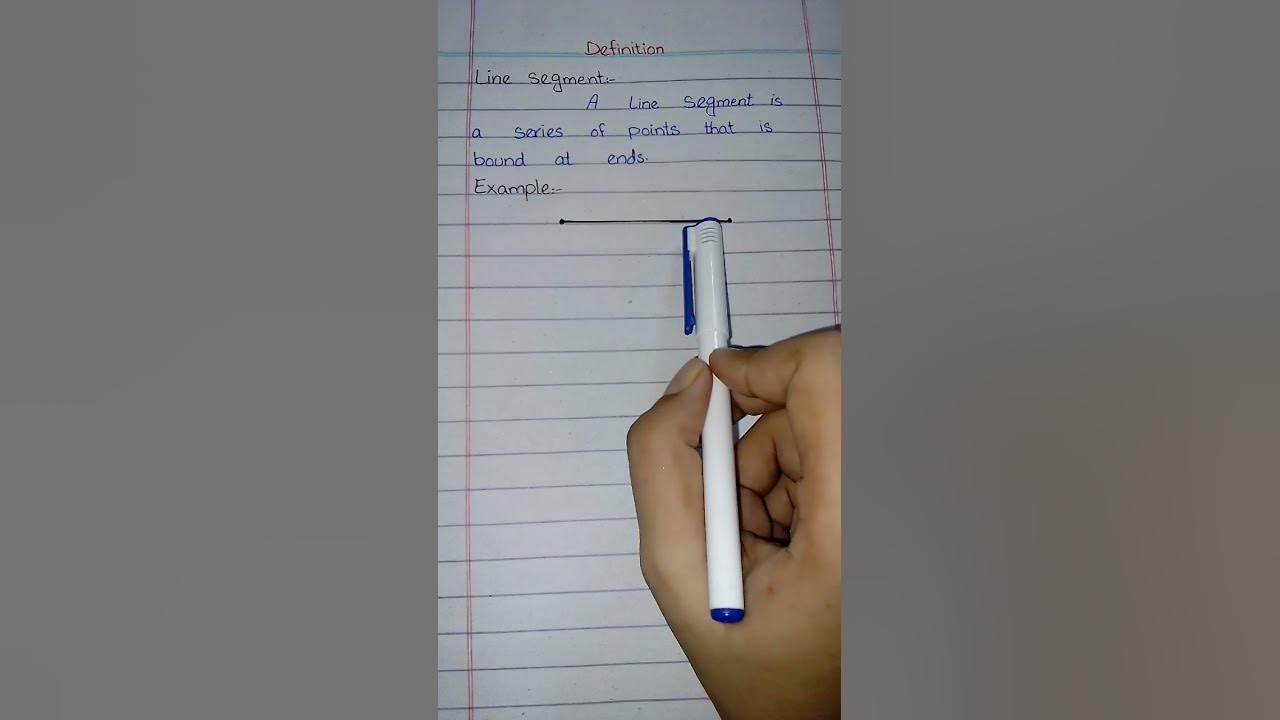 Definition
Line Segment:-
A Line Segment is
a series of points that is
bound at ends.
Example:-